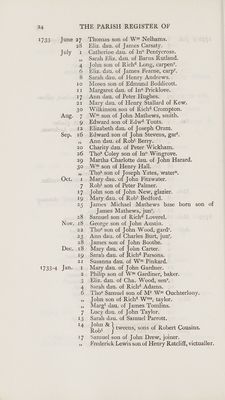 24 THE PARISH REGISTER OF
1733 June 27 Thomas son of Wm Nelhams.
28 Eliz. dau. of James Carsaty.
July 1 Catherine dau. of Jno Pentycross.
„ Sarah Eliz. dau. of Barns Rutland.
4 John son of Richd Long, carpenr.
6 Eliz. dau. of James Fearne, carpr.
8 Sarah dau. of Henry Andrews.
10 Moses son of Edmund Boddicott.
11 Margaret dau. of Jno Pricklove.
17 Ann dau. of Peter Hughes.
21 Mary dau. of Henry Stallard of Kew.
30 Wilkinson son of Richd Crompton.
Aug. 7 Wm son of John Mathews, smith.
9 Edward son of Edwd Touts.
12 Elizabeth dau. of Joseph Oram.
Sep. 16 Edward son of John Stevens, gard.
„ Ann dau. of Robt Berry.
20 Charity dau. of Peter Wickham.
26 Thos Coley son of Jno Wingrove.
29 Martha Charlotte dau. of John Harard.
30 Wm son of Henry Hall.
„ Thos son of Joseph Yates, watern.
Oct. 1 Mary dau. of John Fitzwater.
7 Robt son of Peter Palmer.
17 John son of John New, glazier.
19 Mary dau. of Robt Bedford.
25 James Michael Mathews base born son of
James Mathews, junr.
28 Samuel son of Richd Loverel.
Nov. 18 George son of John Austin.
22 Thos son of John Wood, gardr.
23 Ann dau. of Charles Burt, junr.
28 James son of John Boothe.
Dec. 18 Mary dau. of John Carter.
19 Sarah dau. of Richd Parsons.
21 Susanna dau. of Wm Pinkard.
1733-4 Jan. 1 Mary dau. of John Gardner.
2 Philip son of Wm Gardiner, baker.
3 Eliz. dau. of Cha. Wood, sen.
4 Sarah dau. of Richd Adams.
6 Thos Samuel son of Mr Wm Ouchterlony.
„ John son of Richd Wms, taylor.
„ Margt dau. of James Tomlins.
7 Lucy dau. of John Taylor.
13 Sarah dau. of Samuel Parrott.
14 John & Robt } tweens, sons of Robert Cousins.
17 Samuel son of John Drew, joiner.
„ Frederick Lewis son of Henry Ratcliff, victualler.